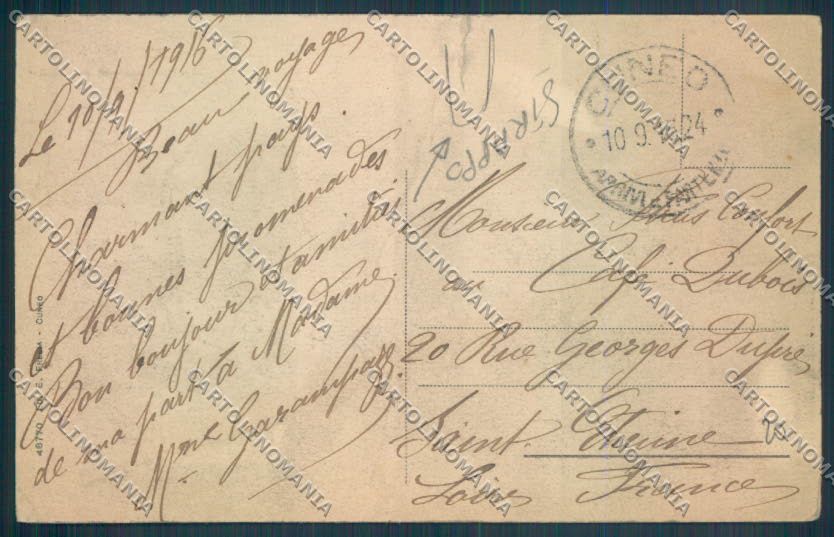 Le 10/9/1916
Beau voyage
Charmant pays.
et bonnes promenades
Bon bonjour et amitiés
de ma part à Madame.
Mme Garampazzi.
STRAPPO
CUNEO
10 9. 24
ARRIVI E PARTENZE
Monsieur Confort
au Café Dubois
20 Rue Georges Dupré
Saint. Etienne
Loire France
46770 CUNEO
CARTOLINOMANIA